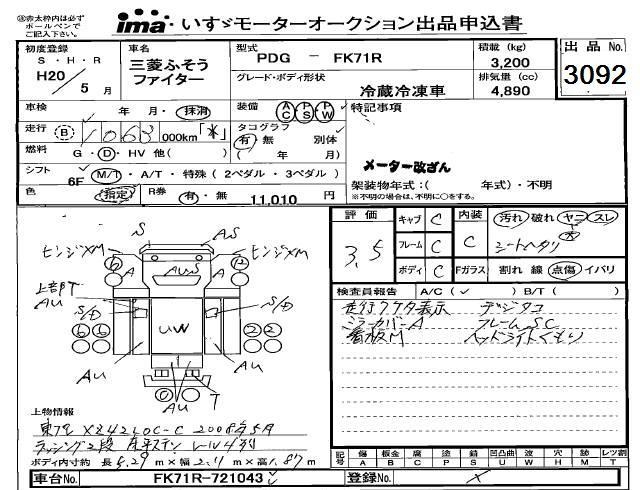 ㊟赤太枠内は必ず
ボールペンで
ご記入下さい。
ima いすゞモーターオークション出品申込書
初度登録
S・H・R
H20 / 5 月
車名
三菱ふそう
ファイター
型式
PDG － FK71R
グレード・ボディ形状
冷蔵冷凍車
積載 (kg)
3,200
排気量 (cc)
4,890
出品 No.
3092
車検 年 月・抹消
装備 AC PS PW
特記事項
走行 B 1063 000km「*」
タコグラフ
有・無 別体
( 年 月)
メーター改ざん
燃料 G・D・HV 他( )
シフト 6F M/T・A/T・特殊 ( 2ペダル・3ペダル )
架装物年式：( 年式)・不明
※不明の場合は、年明に○をする。
色 指定 R券 有・無 11,010 円
評価 3.5
キャブ C
フレーム C
ボディ C
内装 C
汚れ 破れ ヤニ スレ
シートヘタリ
Fガラス 割れ 線 点傷 イバリ
検査員報告 A/C ( ✓ ) B/T ( )
走行フケタ表示 デジタコ
ミラーカバーA フレームSC
看板M ヘッドライトくもり
S AS
ヒンジXM ヒンジXM
A AUS A
上部T
AU
UW
AU AU
T
AU
上物情報
東プレ XZ42LOC-C 2008年5月
ラッシング2段 床平ステン レール4列
ボディ内寸約 長 5.29 m×幅 2.11 m×高 1.87 m
記号 傷 A 板金 B 腐 C 塗 P 錆 S 凹凸曲 U 波 W 穴 H 跡 M レツ割 T
車台No. FK71R-721043
登録No.